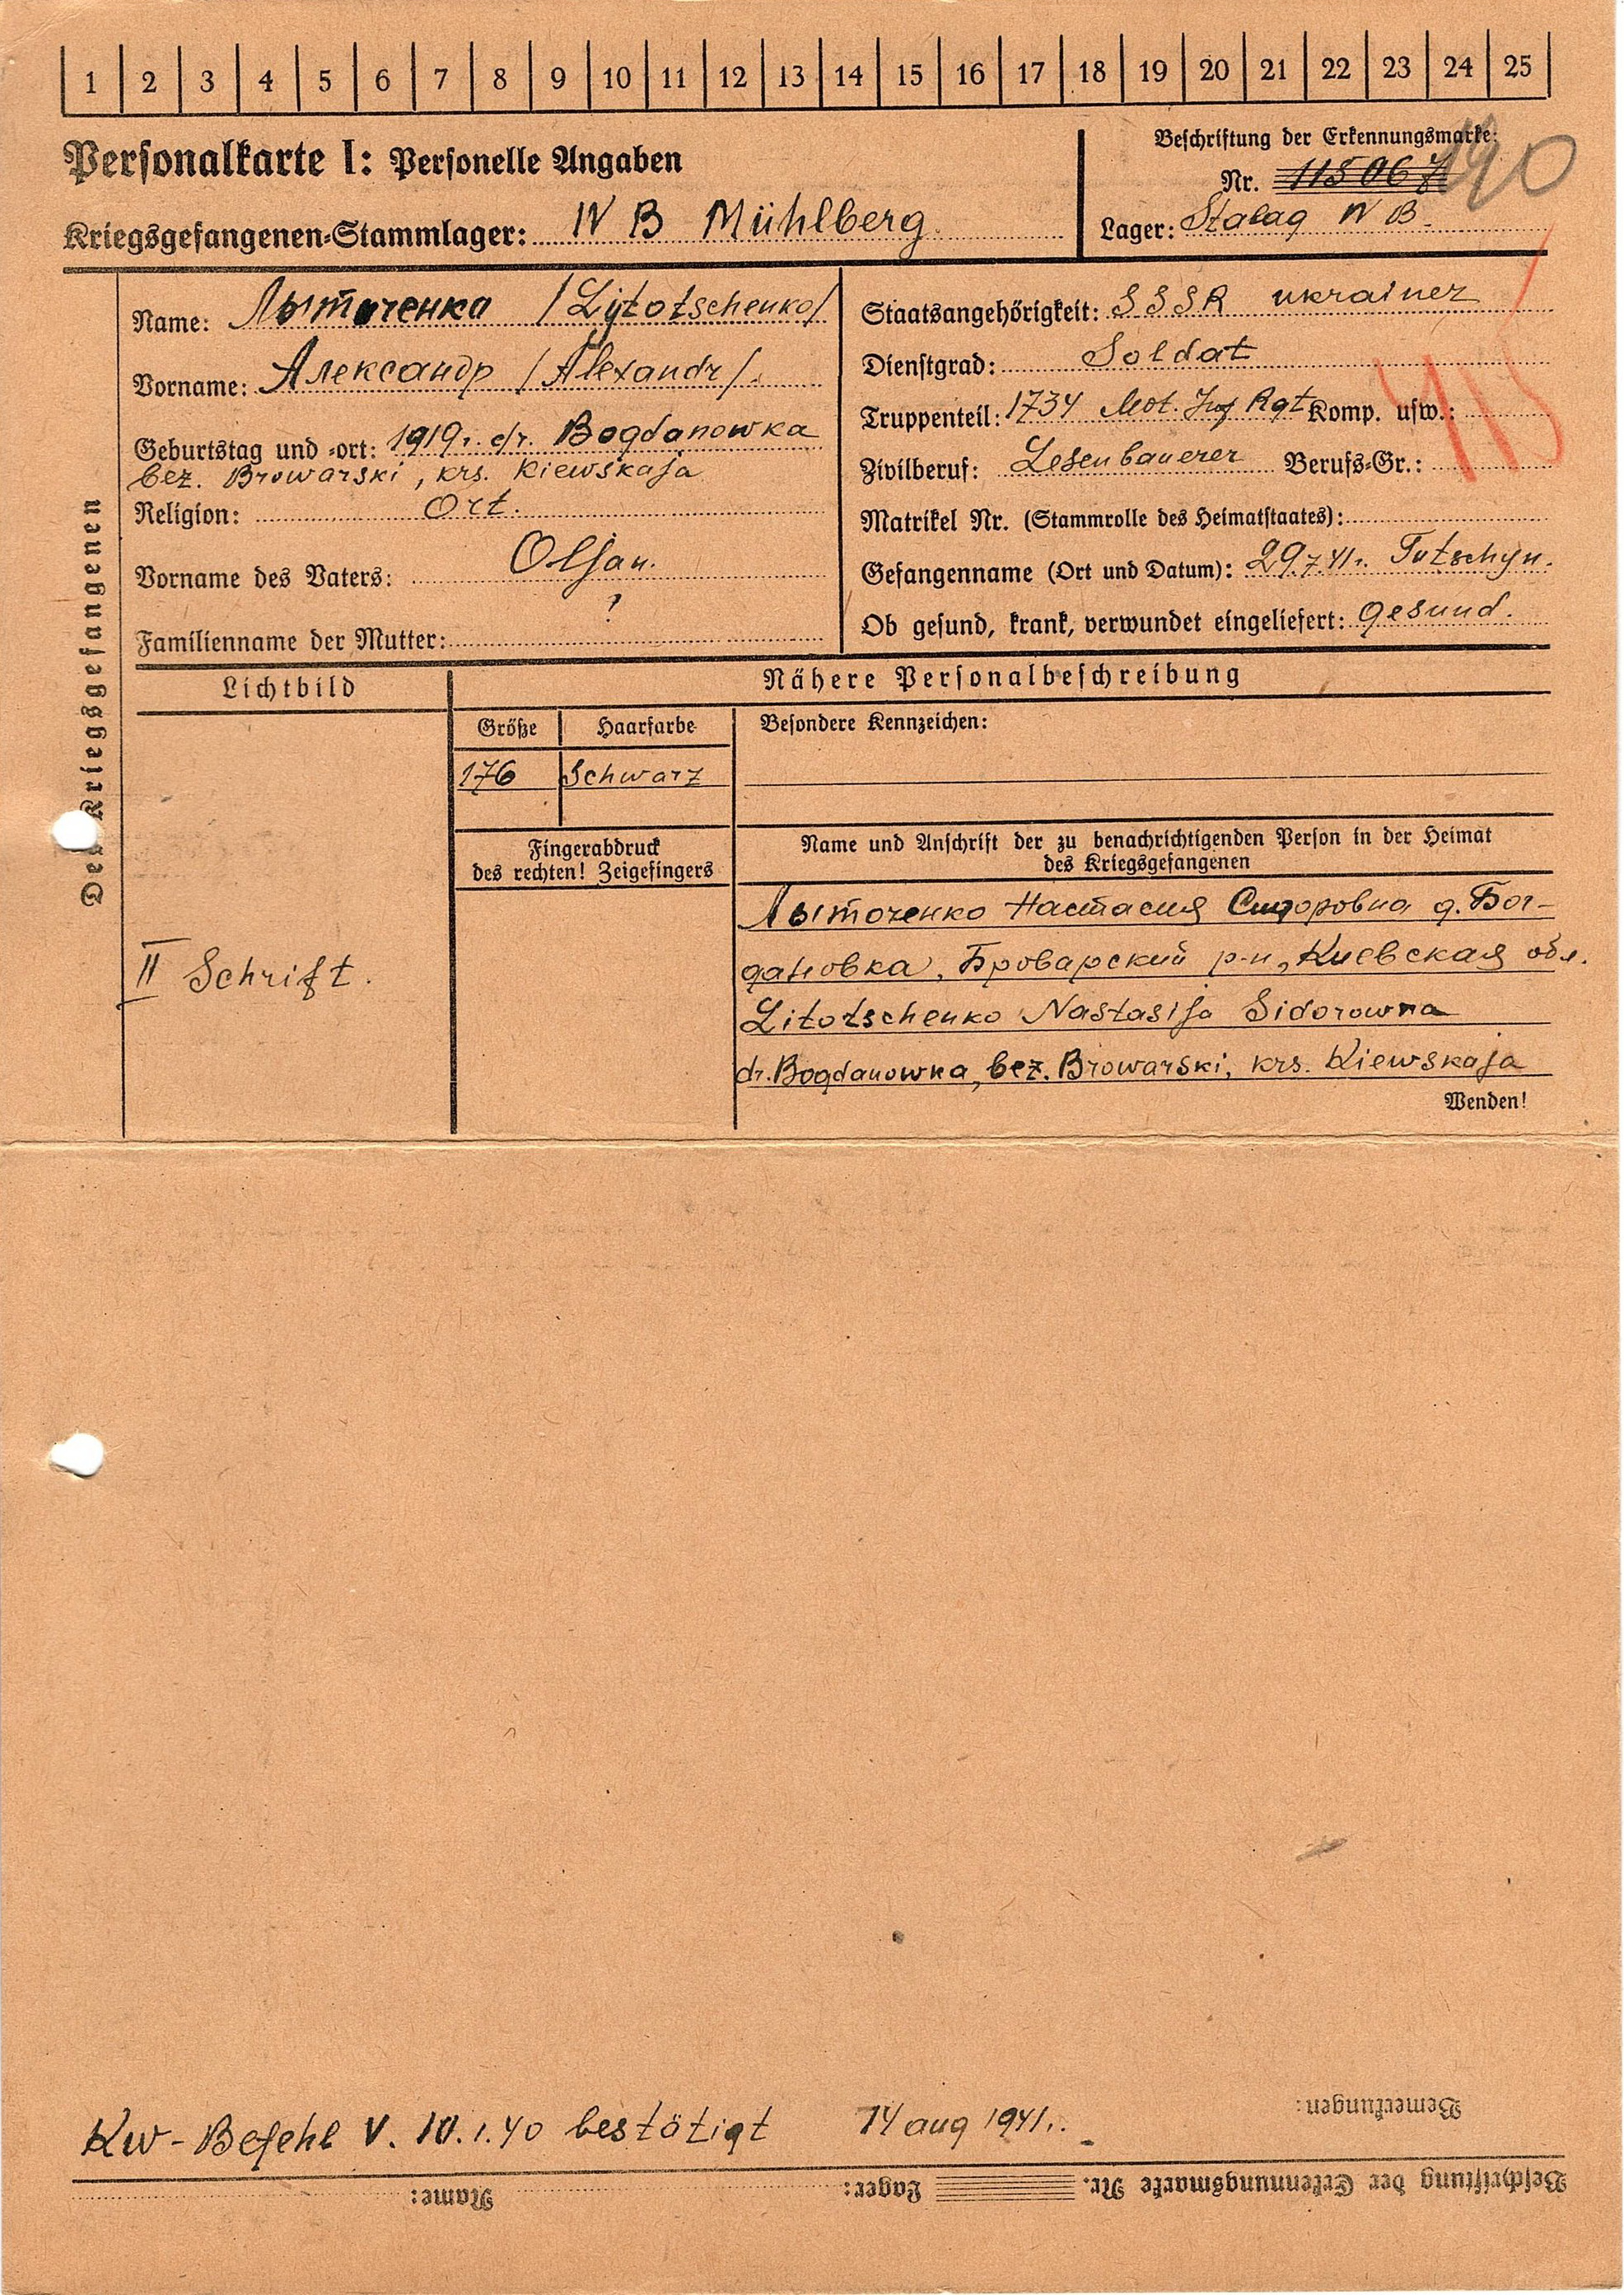 1 2 3 4 5 6 7 8 9 10 11 12 13 14 15 16 17 18 19 20 21 22 23 24 25
Personalkarte I: Personelle Angaben
Kriegsgefangenen-Stammlager: IV B Mühlberg
Beschriftung der Erkennungsmarke:
Nr. 115067 190
Lager: Stalag IV B.
Des Kriegsgefangenen
Name: Лыточенко /Lytotschenko/
Vorname: Александр /Alexandr/.
Geburtstag und -ort: 1919 r. dr. Bogdanowka
bez. Browarski, krs. Kiewskaja
Religion: Ort.
Vorname des Vaters: Oljan.
Familienname der Mutter: ?
Staatsangehörigkeit: SSSR ukrainer
Dienstgrad: Soldat
Truppenteil: 1734 Mot. Inf Rgt Komp. usw.:
Zivilberuf: Lesenbauerer Berufs-Gr.:
Matrikel Nr. (Stammrolle des Heimatstaates):
Gefangenname (Ort und Datum): 29.7.41 r. Tutschyn.
Ob gesund, krank, verwundet eingeliefert: gesund.
Lichtbild
Nähere Personalbeschreibung
Größe Haarfarbe Besondere Kennzeichen:
176 Schwarz
Fingerabdruck
des rechten! Zeigefingers
Name und Anschrift der zu benachrichtigenden Person in der Heimat
des Kriegsgefangenen
Лыточенко Настасия Сидоровна д. Бог-
дановка, Броварский р-н, Киевская обл.
Litotschenko Nastasija Sidorowna
dr. Bogdanowka, bez. Browarski, krs. Kiewskaja
Wenden!
II Schrift.
Kw-Befehl V. 10.1.40 bestätigt 14 aug 1941 r.
Bemerkungen:
Beschriftung der Erkennungsmarke Nr. Lager: Name: